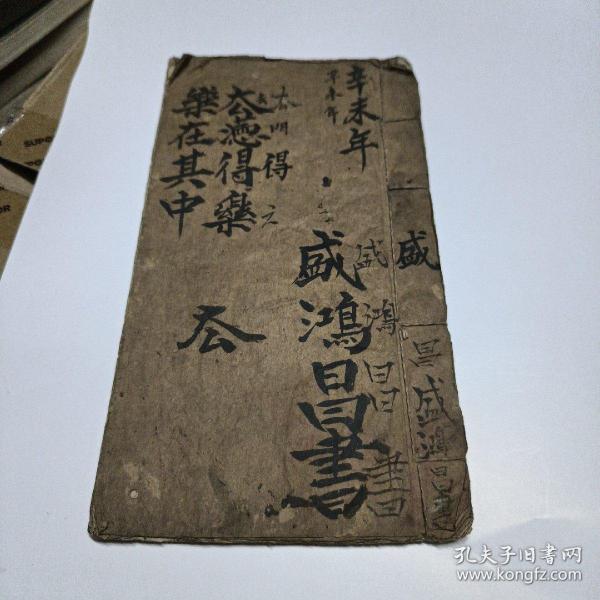 辛未年
辛未年
盛
盛鴻昌書
盛鴻昌書
昌盛鴻昌書
得
得樂
樂在其中
孔夫子旧书网
www.kongfz.com
SUPOR